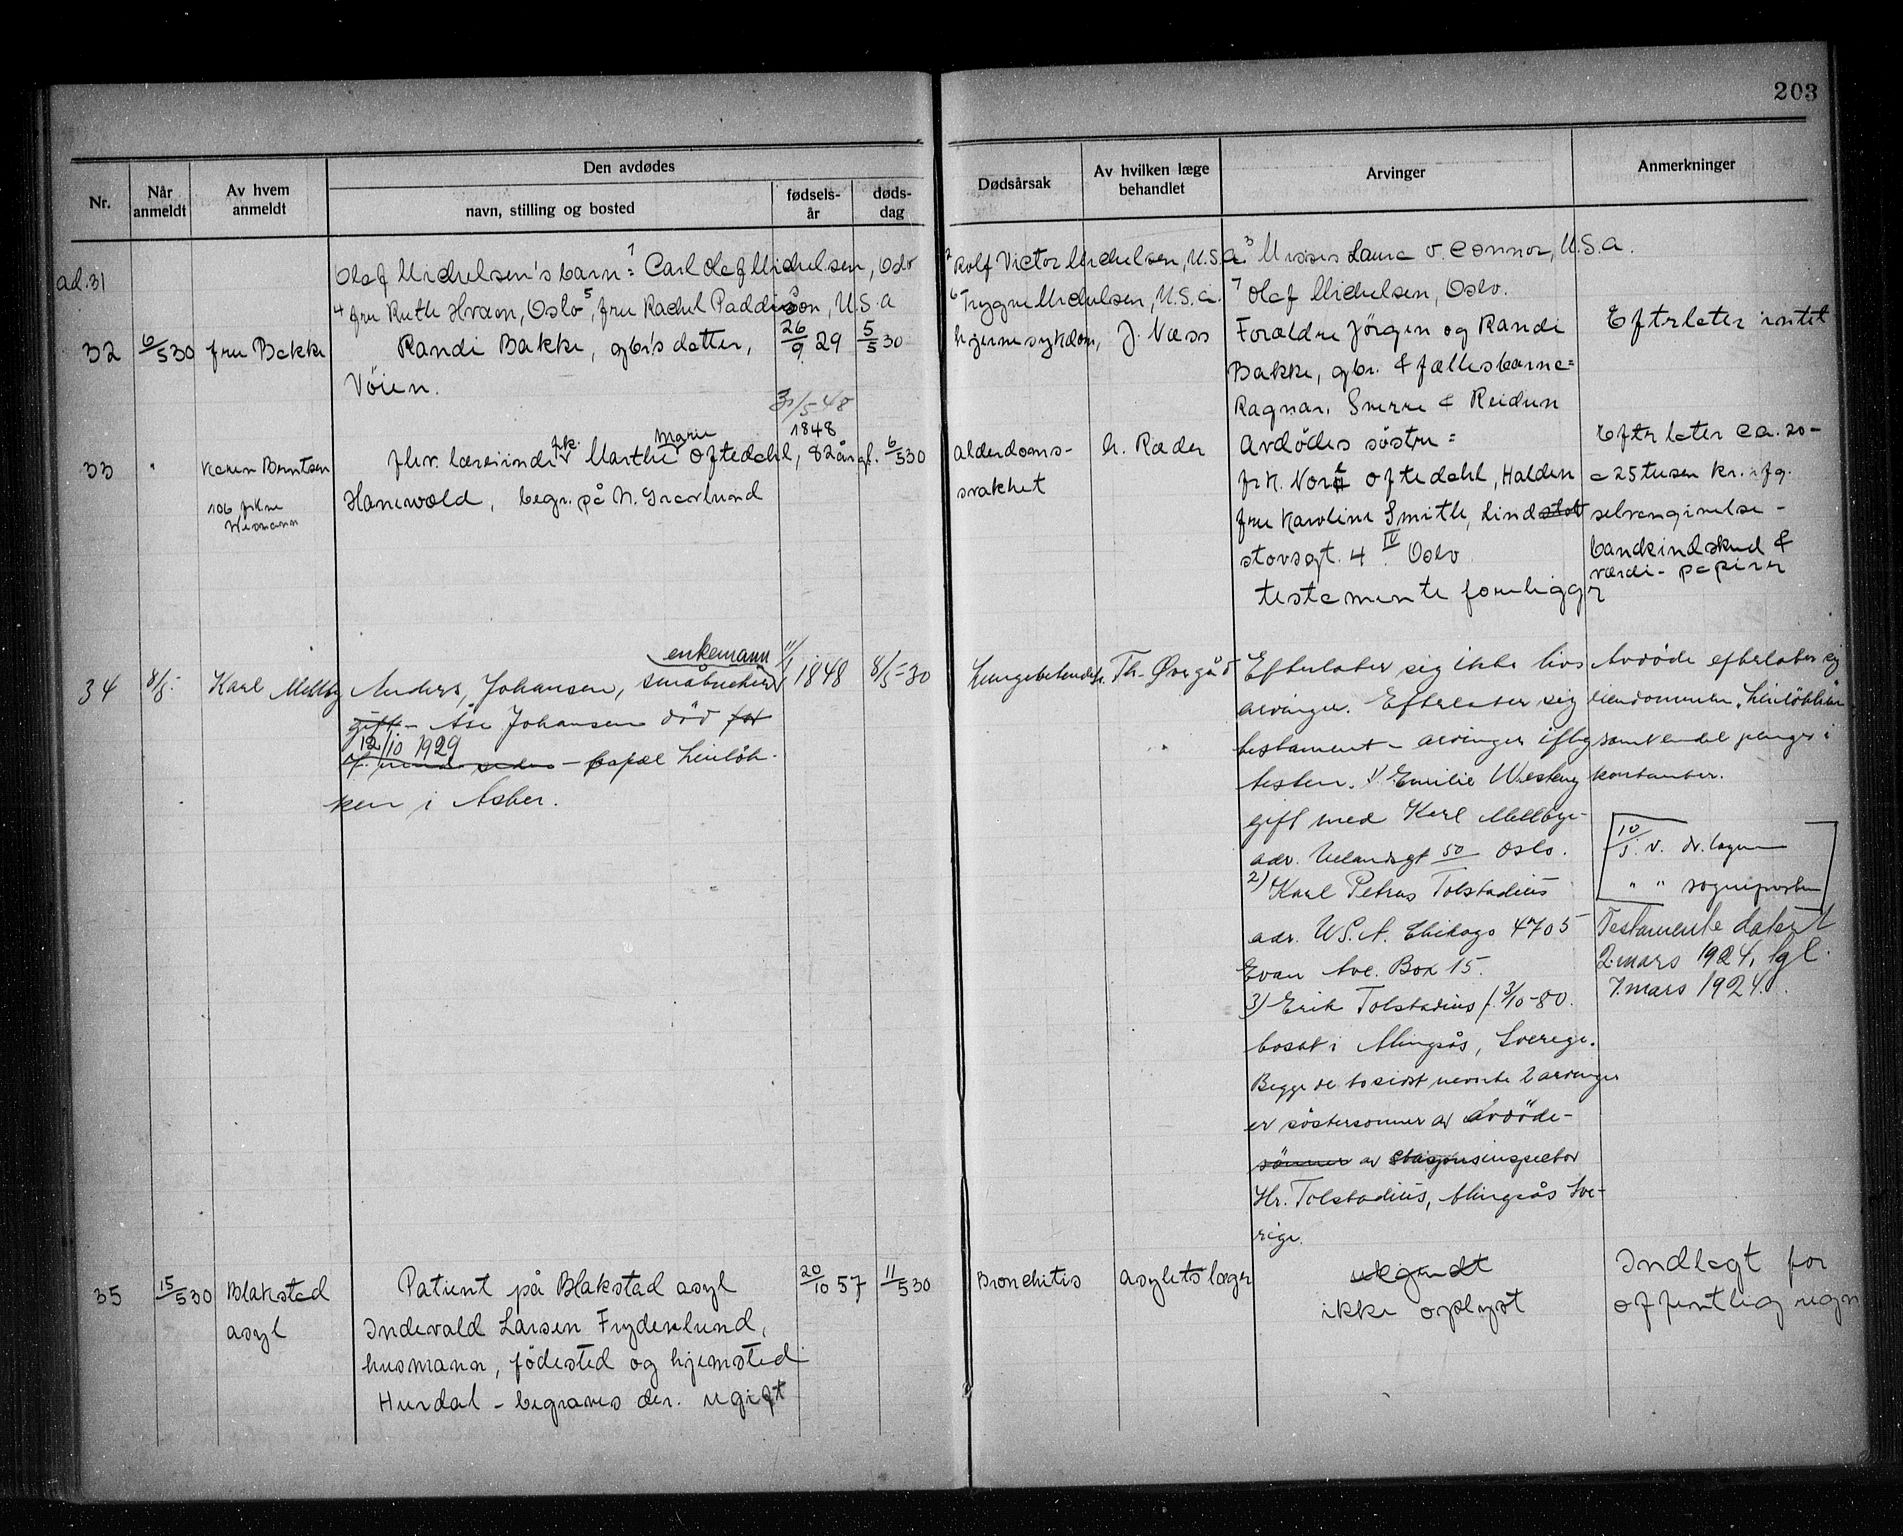 203
Nr.
Når anmeldt
Av hvem anmeldt
Den avdødes
navn, stilling og bosted
fødsels-år
døds-dag
Dødsårsak
Av hvilken læge behandlet
Arvinger
Anmerkninger
ad. 31
Olaf Michelsen's barn: 1 Carl Olaf Michelsen, Oslo
2 Rolf Victor Michelsen, U.S.A. 3 Misses Laura O Connor, U.S.A.
4 fru Ruth Hvam, Oslo, 5 fru Rachel Paddison, U.S.A
6 Trygve Michelsen, U.S.A. 7 Olaf Michelsen, Oslo.
32
6/5 30
fru Bakke
Randi Bakke, gbr's datter,
Vøien.
26/9 29
5/5 30
hjernesykdom,
J. Næss
Forældre Jørgen og Randi
Bakke, gbr. & fællesbarn =
Ragnar, Sverre & Reidun
Efterlater intet
33
"
Karen Berntsen
106 frkne
Wismann
fhv. lærerinde frk. Marthe Marie Oftedahl, 82 år gl.
Hanevold, begr. på N. Gravlund
31/5-48
1848
6/5 30
alderdoms-
svakhet
h. Ræder
Avdødes søstre =
frk. Nora Oftedahl, Halden
fru Karoline Smith, Lindstot
stovsgt. 4 IV Oslo.
testamente foreligger
Efterlater ca. 20-
a 25 tusen kr. ifg.
selvangivelse -
bankindskud &
værdi-papirer
34
8/5.
Karl Mellby
enkemann
Anders Johansen, småbruker
gift - Åse Johansen død for
12/10 1929
- papæl Leirløk-
ken i Asker.
1848
8/5-30
Lungebetendelse
Th. Øvergård
Efterlater sig ikke livs
arvinger. Efterlater sig
testament - arvinger iflg
testm. 1) Emilie Westeng
gift med Karl Mellbye
adr. Uelandsgt 50 Oslo.
2) Karl Petrus Tolstadius
adr. U.S.A. Chikago 4705
Evan Ave. Box 15.
3) Erik Tolstadius f. 3/10-80.
bosat i Alingsås, Sverige.
Begge de to sidst nevnte 2 arvinger
er søstersønner av avdøde-
sønner av stasjonsinspektør
Hr. Tolstadius, Alingsås Sve-
rige.
Avdøde efterlater sig
eiendommen "Leirløkken"
samt endel penger i
kontanter.
10/5. v. dr. legen
" " sogneprsten
Testamente datert
2. mars 1924, tgl.
7. mars 1924.
35
15/5 30
Blakstad
asyl
Patient på Blakstad asyl
Indevald Larsen Frydenlund,
husmann, fødested og hjemsted
Hurdal - begraves der. ugift
20/10 57
11/5 30
Bronchitis
asylets læger
ukjendt
ikke oplyst
Indlagt for
offentlig regn